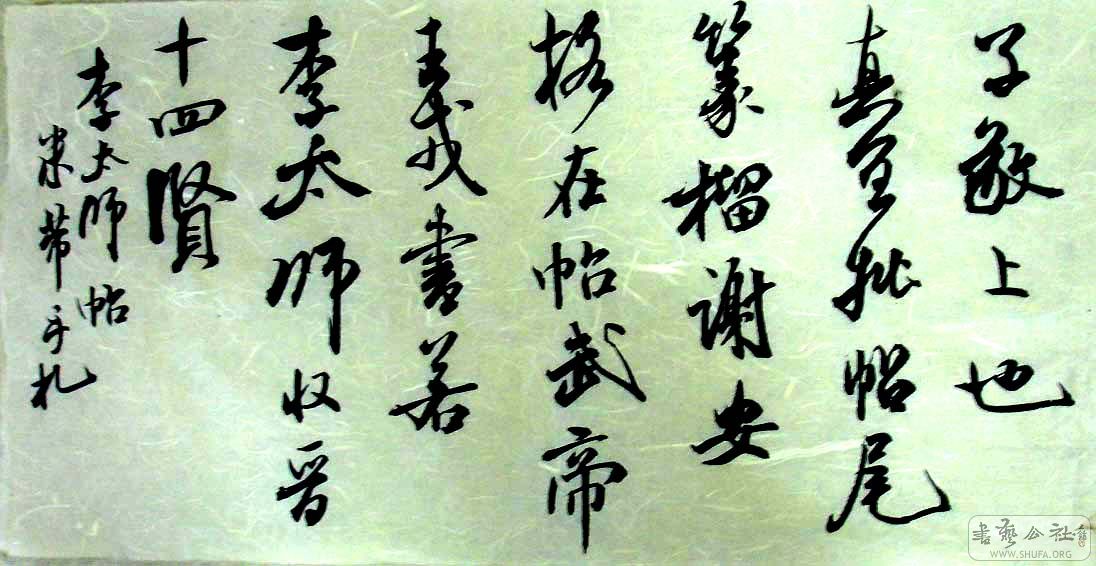 子敬上也
真宜批帖尾
篆榴謝安
格在帖武帝
王戎書若
李太師收晉
十四賢
李太师帖
米芾手札
書藝公社
WWW.SHUFA.ORG